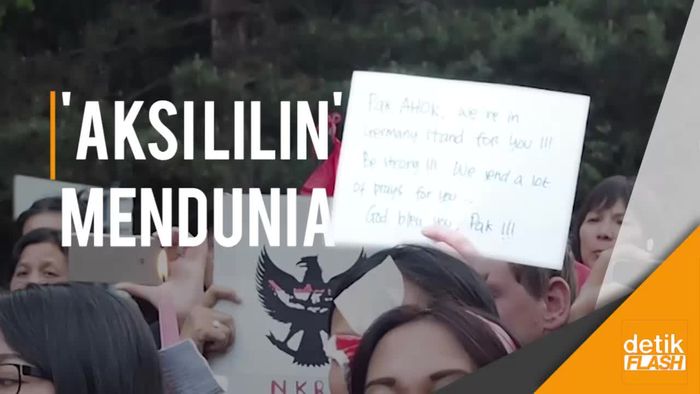 'AKSI LILIN'
MENDUNIA
Pak AHOK, We're in
Germany stand for you !!!
Be strong !!! We send a lot
of prays for you ..
God bless you, Pak !!!
NKRI
detik
FLASH